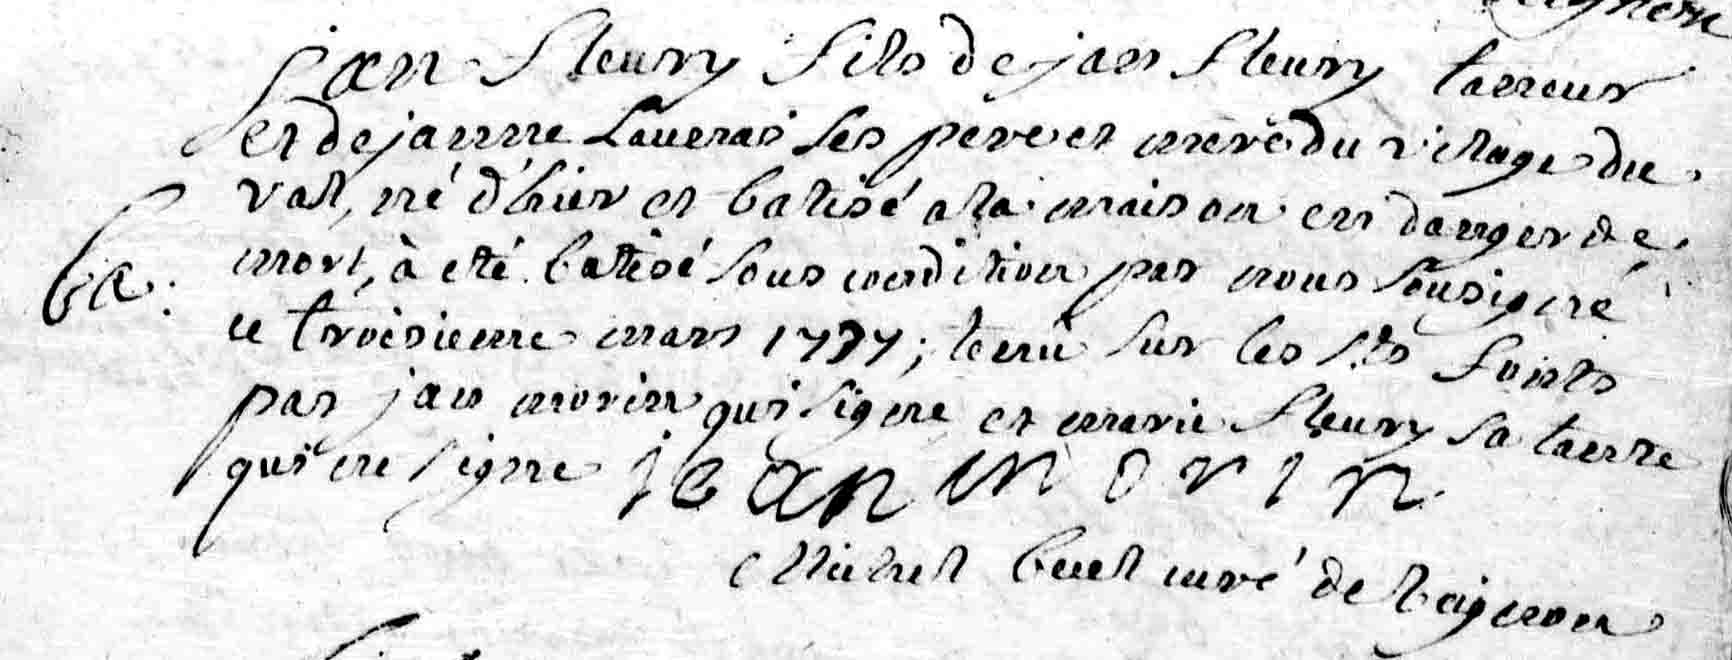 jan fleury fils de jan fleury taneur
et de janne Lauerai ses pere et mere du vilage du
val, né d'hier et batisé a la maison en danger de
mort, à eté batisé sous condition par nous sousigné
ba.
ce troisieme mars 1737; tenu sur les sts fonts
par jan morin qui signe et marie fleury sa tante
qui ne signe jean morin
Michel buel curé de baigneon